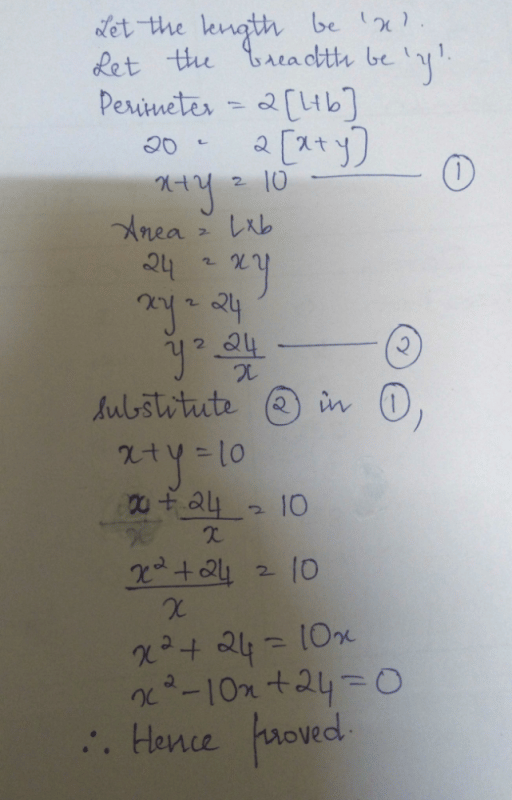 Let the length be 'x'.
Let the breadth be 'y'.
Perimeter = 2[l+b]
20 = 2[x+y]
x+y = 10 ——— ①
Area = l×b
24 = xy
xy = 24
y = 24/x ——— ②
Substitute ② in ①,
x+y = 10
x + 24/x = 10
x² + 24 / x = 10
x² + 24 = 10x
x² - 10x + 24 = 0
∴ Hence proved.